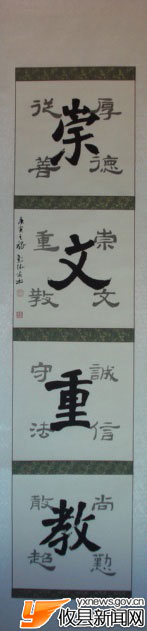 崇
厚德
從善
文
崇文
重教
庚寅之
重
誠信
守法
教
尚懃
敢超
yxnews.gov.cn
攸县新闻网